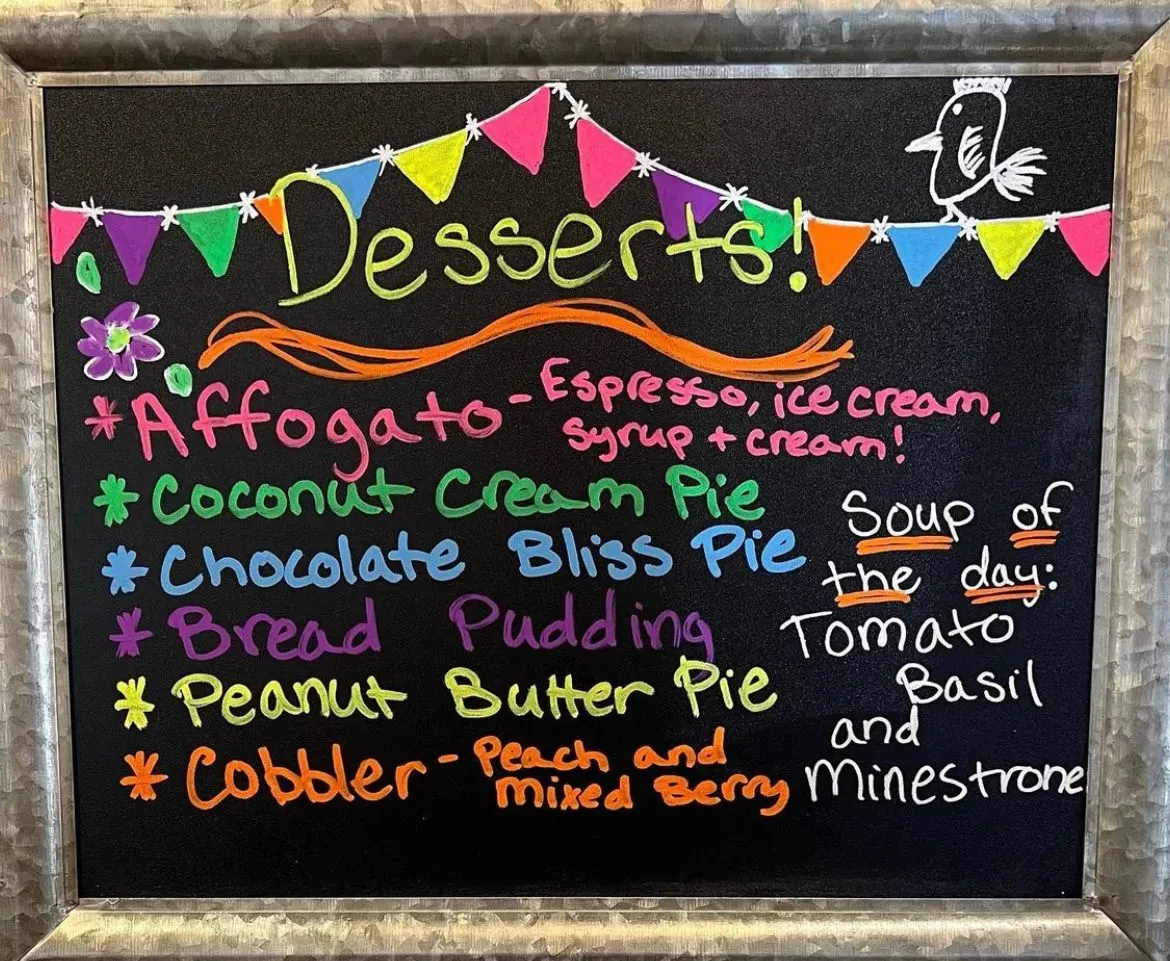 Desserts!
*Affogato - Espresso, ice cream,
syrup + cream!
*Coconut Cream Pie
*Chocolate Bliss Pie
*Bread Pudding
*Peanut Butter Pie
*Cobbler - Peach and
mixed Berry
Soup of
the day:
Tomato
Basil
and
Minestrone